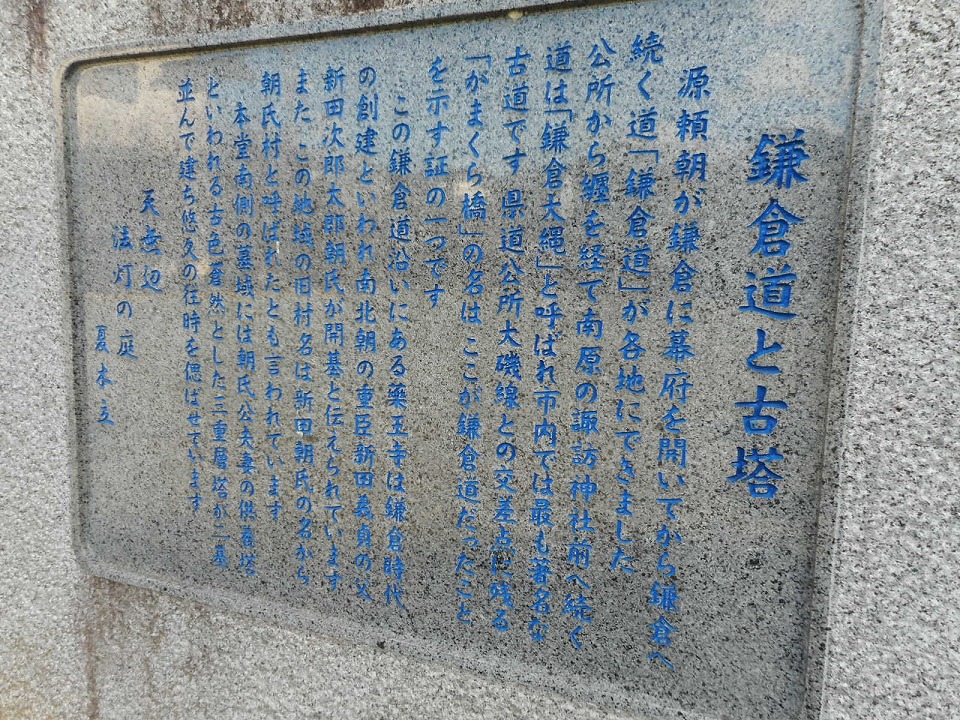 鎌倉道と古塔
源頼朝が鎌倉に幕府を開いてから鎌倉へ
続く道「鎌倉道」が各地にできました
公所から纒を経て南原の諏訪神社前へ続く
道は「鎌倉大縄」と呼ばれ市内では最も著名な
古道です 県道公所大磯線との交差点に残る
「がまくら橋」の名は ここが鎌倉道だったこと
を示す証の一つです
この鎌倉道沿いにある薬王寺は鎌倉時代
の創建といわれ南北朝の重臣新田義貞の父
新田次郎太郎朝氏が開基と伝えられています
また この地域の旧村名は新田朝氏の名から
朝氏村と呼ばれたとも言われています
本堂南側の墓域には朝氏公夫妻の供養塔
といわれる古色蒼然とした三重層塔が二基
並んで建ち悠久の往時を偲ばせています
天無辺
法灯の庭
夏木立